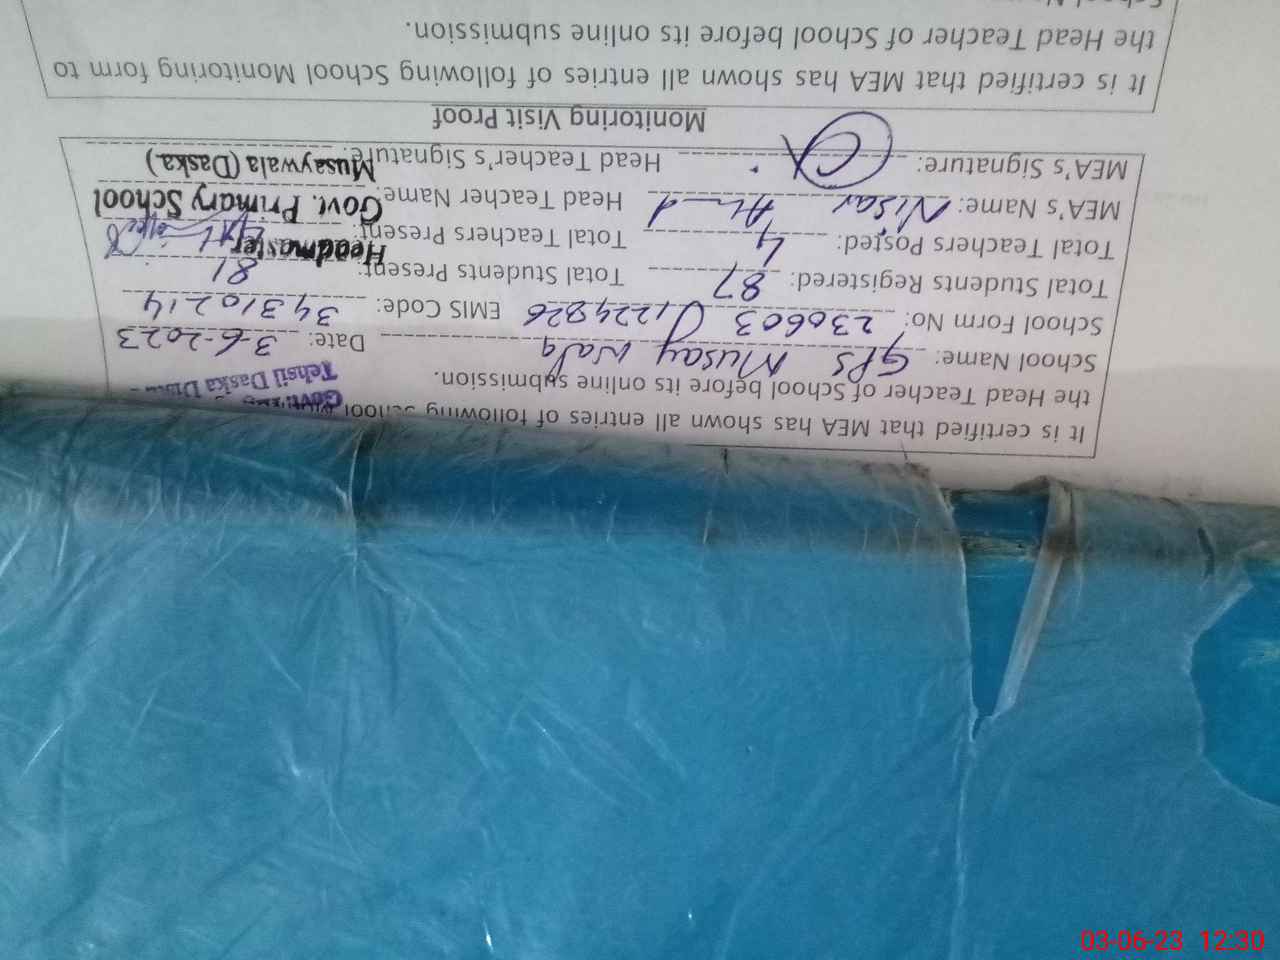 It is certified that MEA has shown all entries of following School
the Head Teacher of School before its online submission.
Govt.
Tehsil Daska
School Name: GPS Musay wala Date: 3-6-2023
School Form No: 230603 EMIS Code: 34310214
Total Students Registered: 87 Total Students Present: 81
Total Teachers Posted: 4 Total Teachers Present:
Headmaster
MEA's Name: Nisar Ahmad Head Teacher Name:
Govt. Primary School
MEA's Signature: Head Teacher's Signature:
Musaywala (Daska)
Monitoring Visit Proof
It is certified that MEA has shown all entries of following School Monitoring form to
the Head Teacher of School before its online submission.
03-06-23 12:30